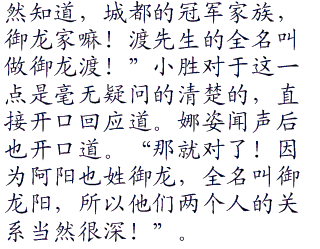 然知道，城都的冠军家族，
御龙家嘛！渡先生的全名叫
做御龙渡！”小胜对于这一
点是毫无疑问的清楚的，直
接开口回应道。娜姿闻声后
也开口道。“那就对了！因
为阿阳也姓御龙，全名叫御
龙阳，所以他们两个人的关
系当然很深！”。